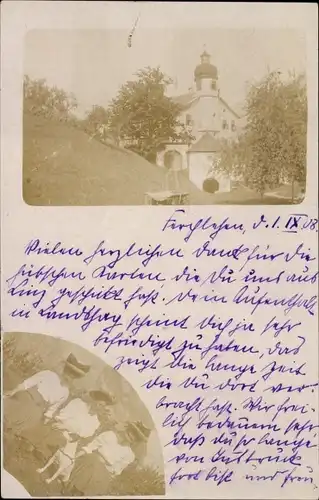 Ferchlehen, d. 1. IX 03.
Vielen herzlichen Dank für die
hübschen Karten die Du uns aus
Linz geschickt hast. Dein Aufenthalt
in Landshaag scheint Dich ja sehr
befriedigt zu haben, das
zeigt die lange Zeit
die Du dort ver-
bracht hast. Wir frei-
lich bedauern sehr
daß Du so lange
von Innsbruck
fort bist und freu